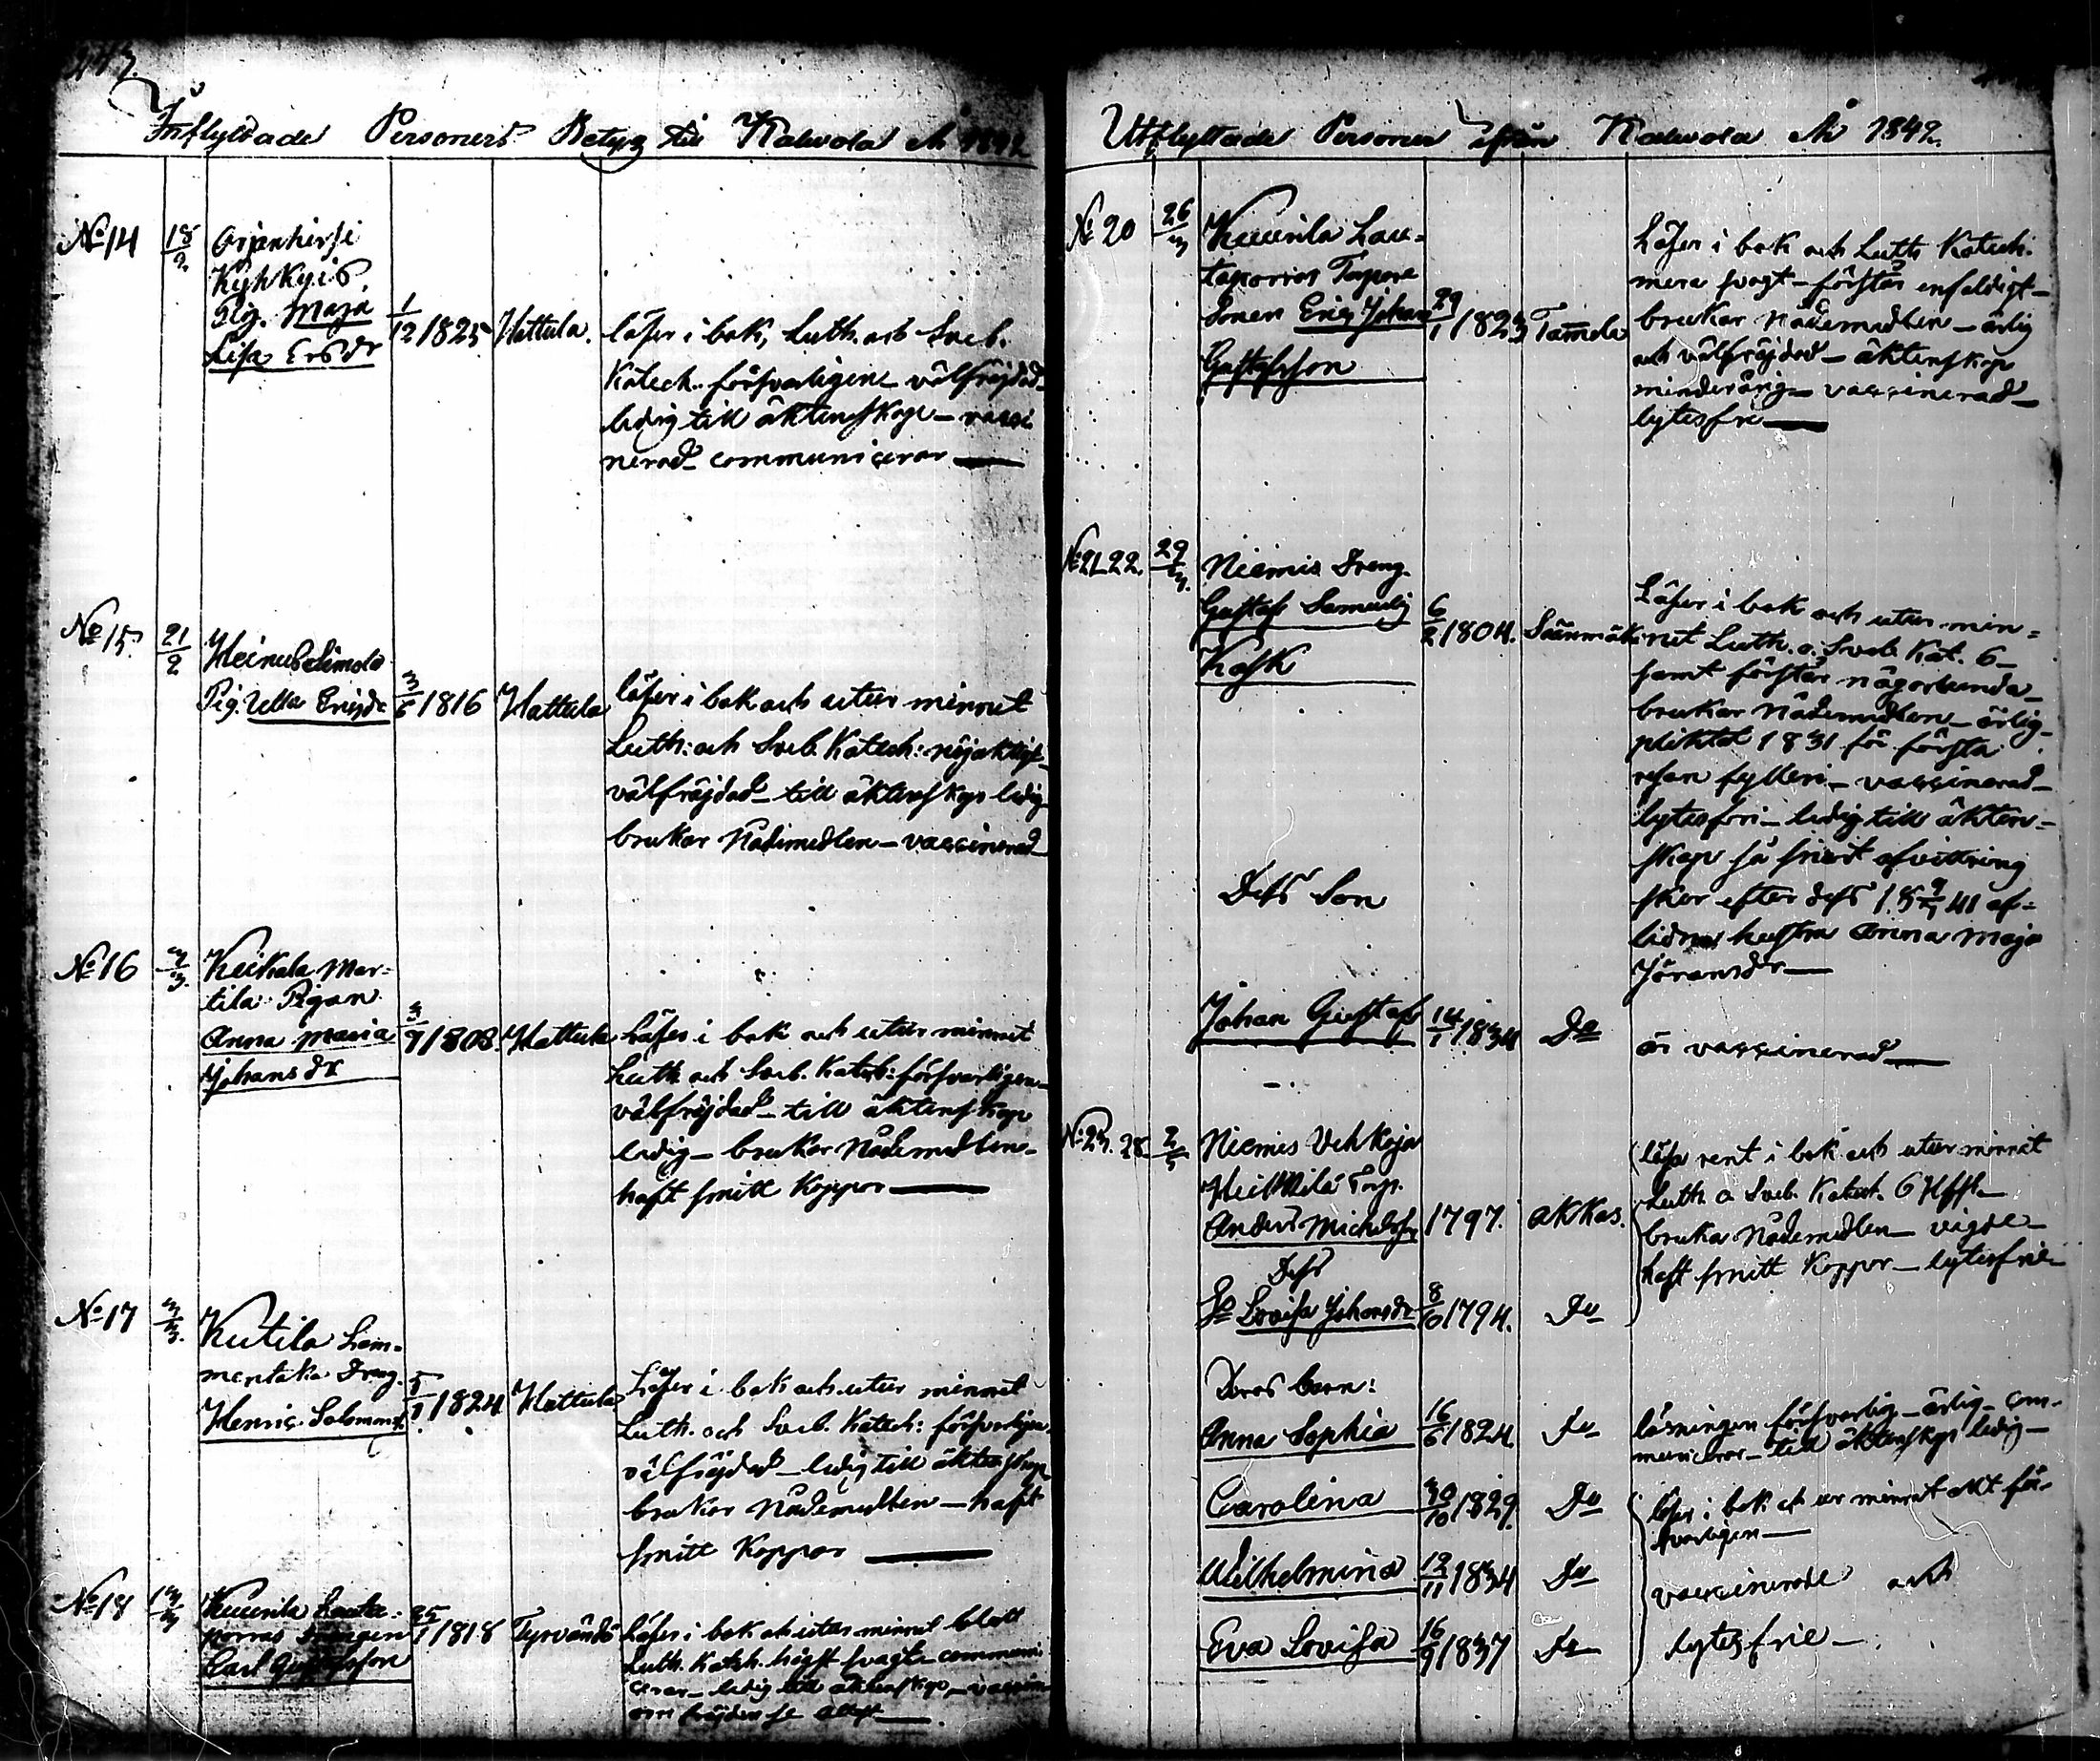 Inflyttade Personers Betyg till Kalvola År 1842
No 14 18/2 Orjanhirsi
Kyhkyis
Pig. Maja 1/12 1825 Hattula. läser i bok, Luth. och Sveb.
Lisa Ersdr
Katech. försvarligen välfräjdad
ledig till äktenskap – vacci
nerad communicerar
No 15. 21/2
Pig. Ulla Ericsdr 3/6 1816 Hattula läser i bok och utur minnet
Luth: och Sveb. Katech: nöjaktigt
välfräjdad – till äktenskap ledig
brukar Nådemedlen – vaccinerad
No 16 3/3. Keikala Mar=
tila Pigan
Anna Maria 3/9 1808. Hattula Läser i bok och utur minnet
Johansdr
Luth och Sveb. Katech: försvarligen
välfräjdad – till äktenskap
ledig – brukar Nådemedlen –
haft smitt Koppor
No 17 3/3. Kutila Lam=
mentaka Dreng.
Henric Salomons. 1824 Hattula Läser i bok och utur minnet
Luth. och Sveb. Katech: försvarligen
välfräjdad – ledig till äktenskap
brukar Nådemedlen – haft
smitt Koppor
No 18 13/3 Kuurila Lauta=
porras Drengen 1818 Tyrvändö Läser i bok och utur minnet blott
Carl Gustafsson Luth. Katech. högst svagt – communi
cerar – ledig till äktenskap –
om fräjden se
Utflyttade Personer ifrån Kalvola År 1842.
No 20 26/3 Kuurila Lau=
taporras Torpare
Sonen Eric Johan 29/1 1823 Tamela
Gustafsson
Läser i bok och Luth Katech.
mera svagt – förstår enfaldigt –
brukar Nådemedlen – ärlig
och välfräjdad – äktenskap
minderårig – vaccinerad –
lytesfri
No 21. 22. 29/3. Niemis Dreng.
Gustaf Samuelss 6/2 1804. Säänmäki
Kask
Läser i bok och utur min=
net Luth. o. Sveb. Kat. 6 –
samt förstår någorlunda –
brukar Nådemedlen – ärlig –
pliktat 1831 för första
resan fylleri – vaccinerad –
lytesfri – ledig till äkten=
skap så snart afvittring
sker efter dess 41 af=
lidna hustru Anna Maja
Göransdr
Dess Son
Johan Gustaf 14/1 1834 Do är vaccinerad
No 23. 28 Niemis Vehkoja
Heikkilä Torp.
Anders Michelss 1797. Akkas.
läsa rent i bok och utur minnet
Luth. o Sveb. Katech. 6 Hfst. –
bruka Nådemedlen – vigde –
haft smitt Koppor – lytesfrie –
Dess
Lovisa Johansdr 8/10 1794. Do
Deras barn:
Anna Sophia 16/6 1824 Do läsningen försvarlig – ärlig – com=
municerar – till äktenskap ledig –
Carolina 30/10 1829. Do läser i bok och ur minnet allt för=
svarligen
Wilhelmina 12/11 1834 Do vaccinerade och
Eva Lovisa 16/9 1837 Do lytesfrie –